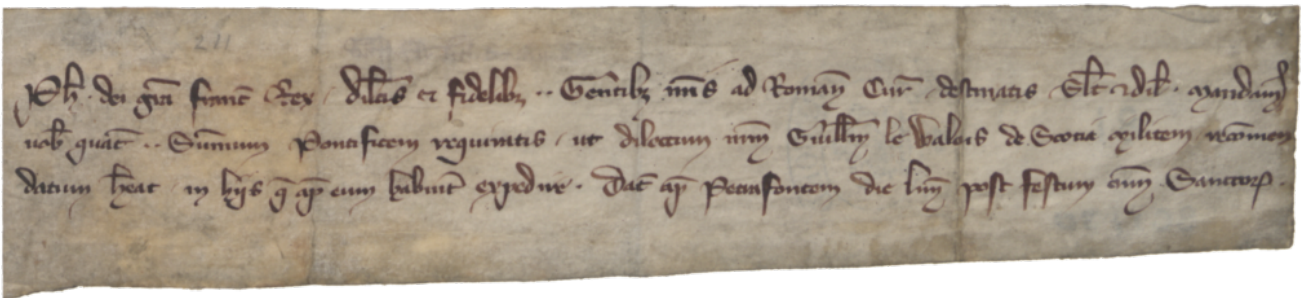 Ph. dei gra francie Rex dilcis et fidelibz .. Gentibz nris ad Romanā Cur destinatis Salt & dil. Mandamꝰ
vob qᵃtꝰ .. Sūmum Pontificem requiratis ut dilectum nrm Guillm le Walois de Scotia Militem recōmen
datum heat in hiis q̄ ap eum habuit expedire . Dat ap Petrafontem die lune post festum oīm Sanctoꝝ .